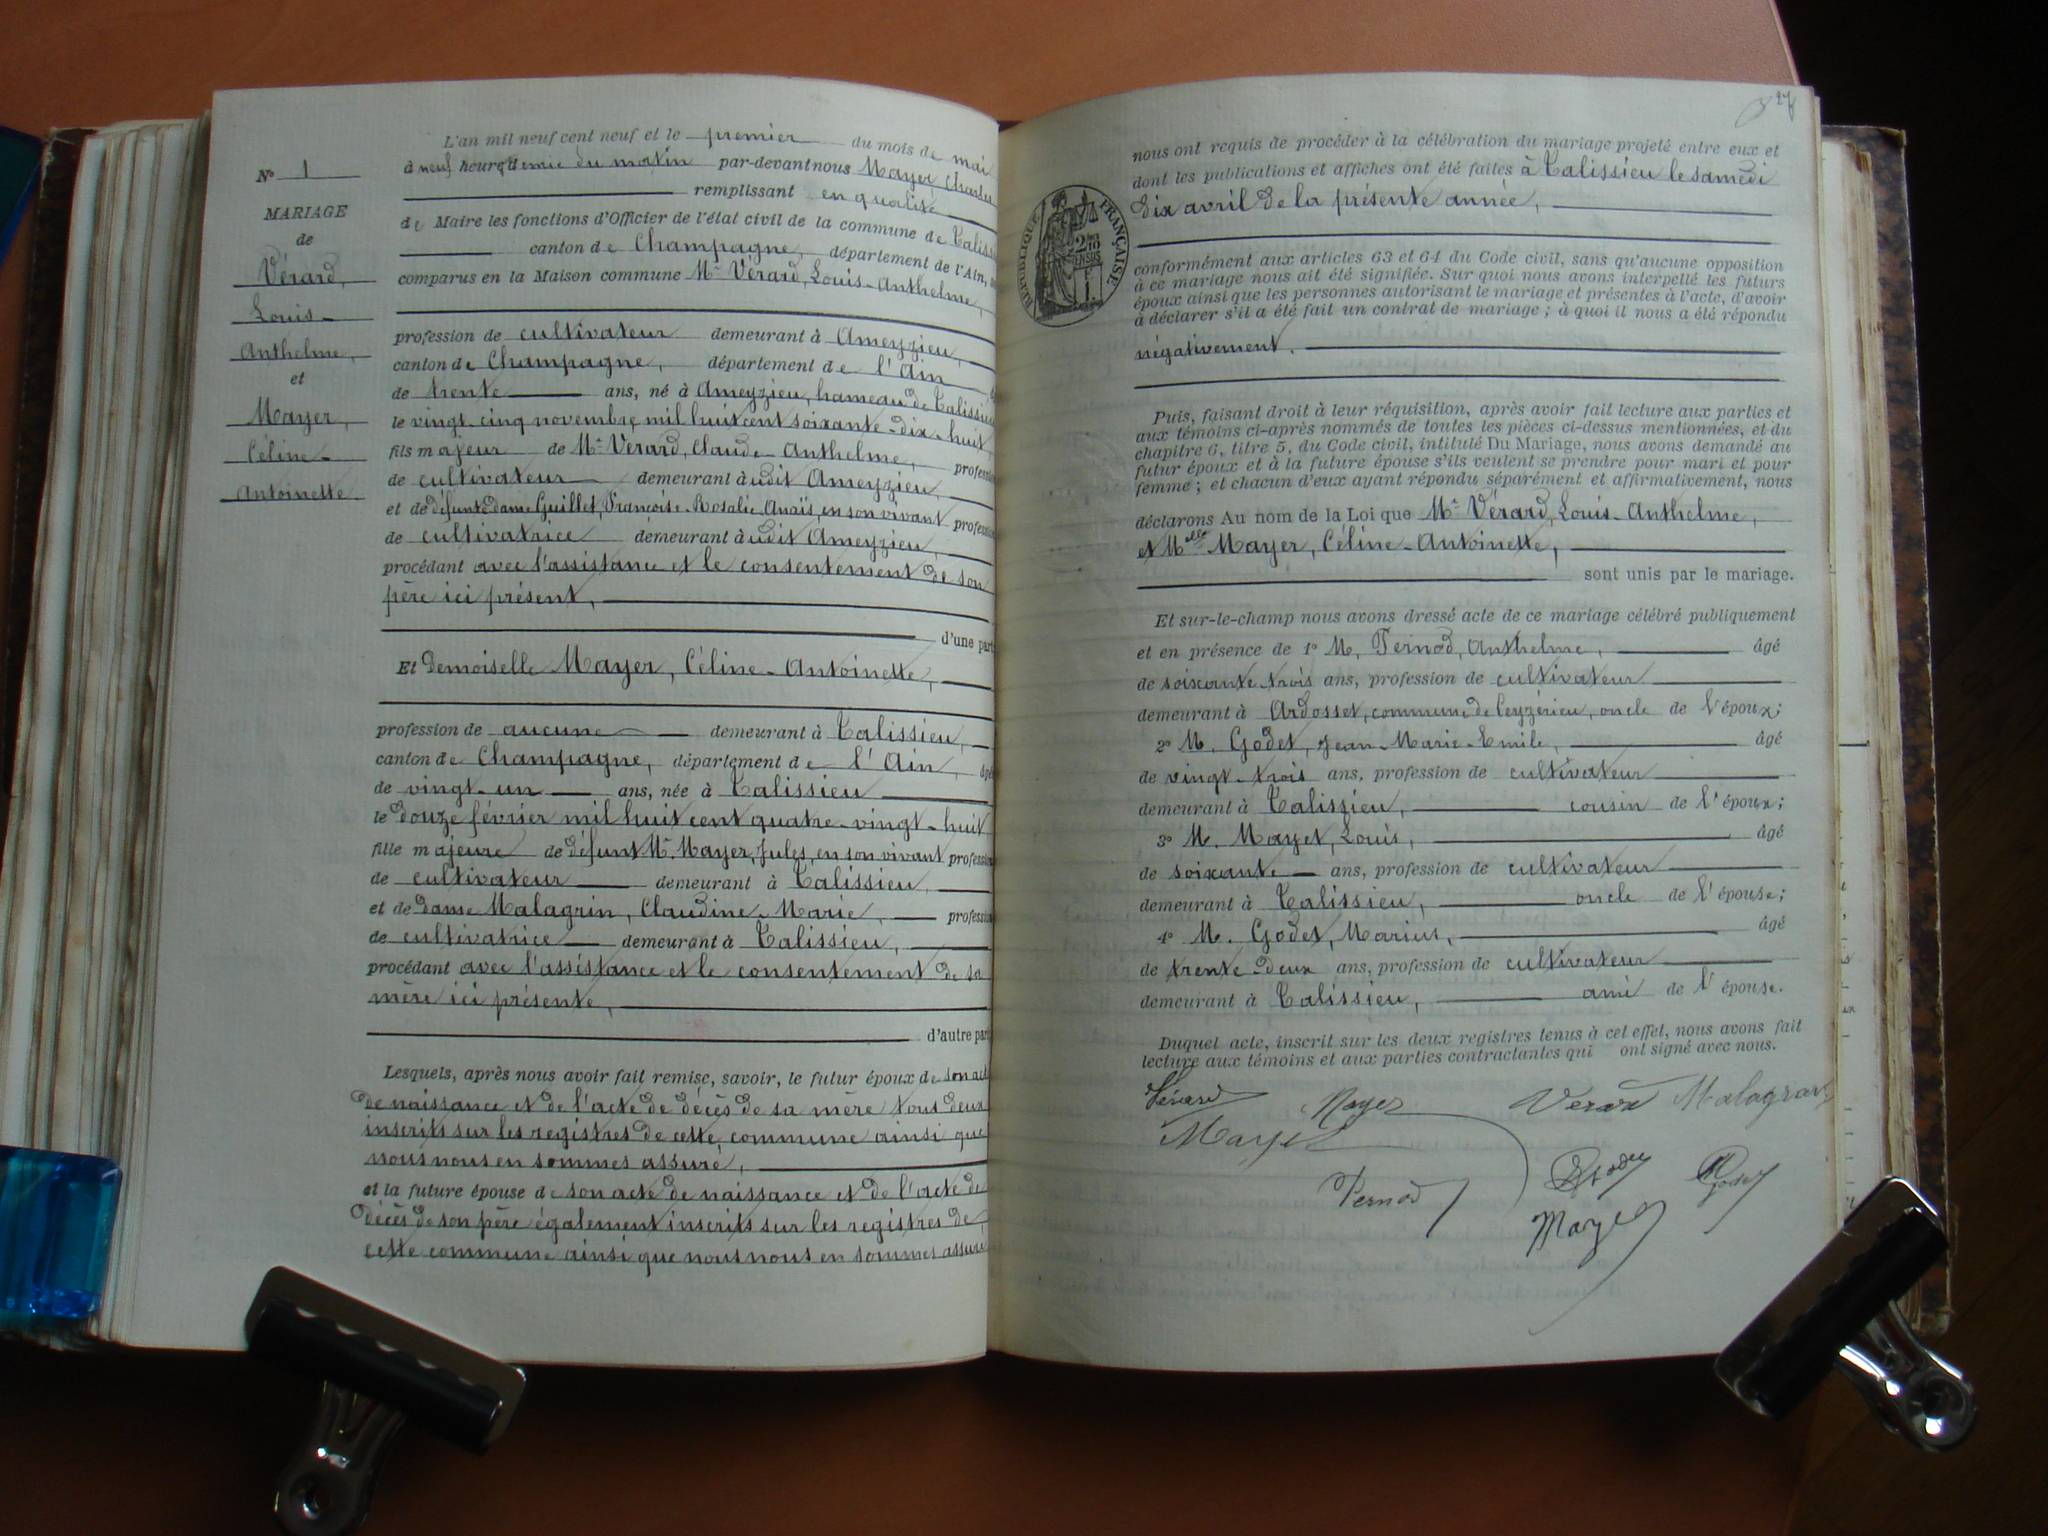 N° 1
MARIAGE
de
Vérard,
Louis-
Anthelme,
et
Mayer,
Céline-
Antoinette.
L'an mil neuf cent neuf et le premier du mois de mai
à neuf heures demie du matin par-devant nous Mayer Charles
remplissant en qualité
de Maire les fonctions d'Officier de l'état civil de la commune de
canton de Champagne, département de l'Ain,
comparus en la Maison commune Mr Vérard, Louis-Anthelme,
profession de cultivateur demeurant à Ameyzieu,
canton de Champagne, département de l'Ain
de trente ans, né à Ameyzieu, hameau de Talissieu
le vingt-cinq novembre mil huit cent soixante-dix-huit,
fils majeur de Mr Vérard, Claude-Anthelme, profession
de cultivateur demeurant à udit Ameyzieu,
et de défunte dame Guillet, Françoise-Rosalie-Anaïs, en son vivant profession
de cultivatrice demeurant à udit Ameyzieu,
procédant avec l'assistance et le consentement de son
père ici présent,
d'une part
Et Demoiselle Mayer, Céline-Antoinette,
profession de aucune demeurant à Talissieu,
canton de Champagne, département de l'Ain, âgé
de vingt-un ans, née à Talissieu
le douze février mil huit cent quatre-vingt-huit
fille majeure de défunt Mr Mayer, Jules, en son vivant profession
de cultivateur demeurant à Talissieu,
et de dame Malagrin, Claudine-Marie, profession
de cultivatrice demeurant à Talissieu,
procédant avec l'assistance et le consentement de sa
mère ici présente,
d'autre part
Lesquels, après nous avoir fait remise, savoir, le futur époux de son acte
de naissance et de l'acte de décès de sa mère tous deux
inscrits sur les registres de cette commune ainsi que
nous nous en sommes assuré,
et la future épouse de son acte de naissance et de l'acte de
décès de son père également inscrits sur les registres de
cette commune ainsi que nous nous en sommes assuré
27
nous ont requis de procéder à la célébration du mariage projeté entre eux et
dont les publications et affiches ont été faites à Talissieu le samedi
dix avril de la présente année,
RÉPUBLIQUE FRANÇAISE
conformément aux articles 63 et 64 du Code civil, sans qu'aucune opposition
à ce mariage nous ait été signifiée. Sur quoi nous avons interpellé les futurs
époux ainsi que les personnes autorisant le mariage et présentes à l'acte, d'avoir
à déclarer s'il a été fait un contrat de mariage ; à quoi il nous a été répondu
négativement.
Puis, faisant droit à leur réquisition, après avoir fait lecture aux parties et
aux témoins ci-après nommés de toutes les pièces ci-dessus mentionnées, et du
chapitre 6, titre 5, du Code civil, intitulé Du Mariage, nous avons demandé au
futur époux et à la future épouse s'ils veulent se prendre pour mari et pour
femme ; et chacun d'eux ayant répondu séparément et affirmativement, nous
déclarons Au nom de la Loi que Mr Vérard, Louis-Anthelme,
et Melle Mayer, Céline-Antoinette,
sont unis par le mariage.
Et sur-le-champ nous avons dressé acte de ce mariage célébré publiquement
et en présence de 1° M. Pernod, Anthelme, âgé
de soixante trois ans, profession de cultivateur
demeurant à Ardosset, commune de Ceyzérieu, oncle de l'époux;
2° M. Godet, Jean-Marie-Emile, âgé
de vingt-trois ans, profession de cultivateur
demeurant à Talissieu, cousin de l'époux;
3° M. Mayet, Louis, âgé
de soixante ans, profession de cultivateur
demeurant à Talissieu, oncle de l'épouse;
4° M. Godet, Marius, âgé
de trente deux ans, profession de cultivateur
demeurant à Talissieu, ami de l'épouse.
Duquel acte, inscrit sur les deux registres tenus à cet effet, nous avons fait
lecture aux témoins et aux parties contractantes qui ont signé avec nous.
Vérard Mayer Verard
Mayet
Pernod